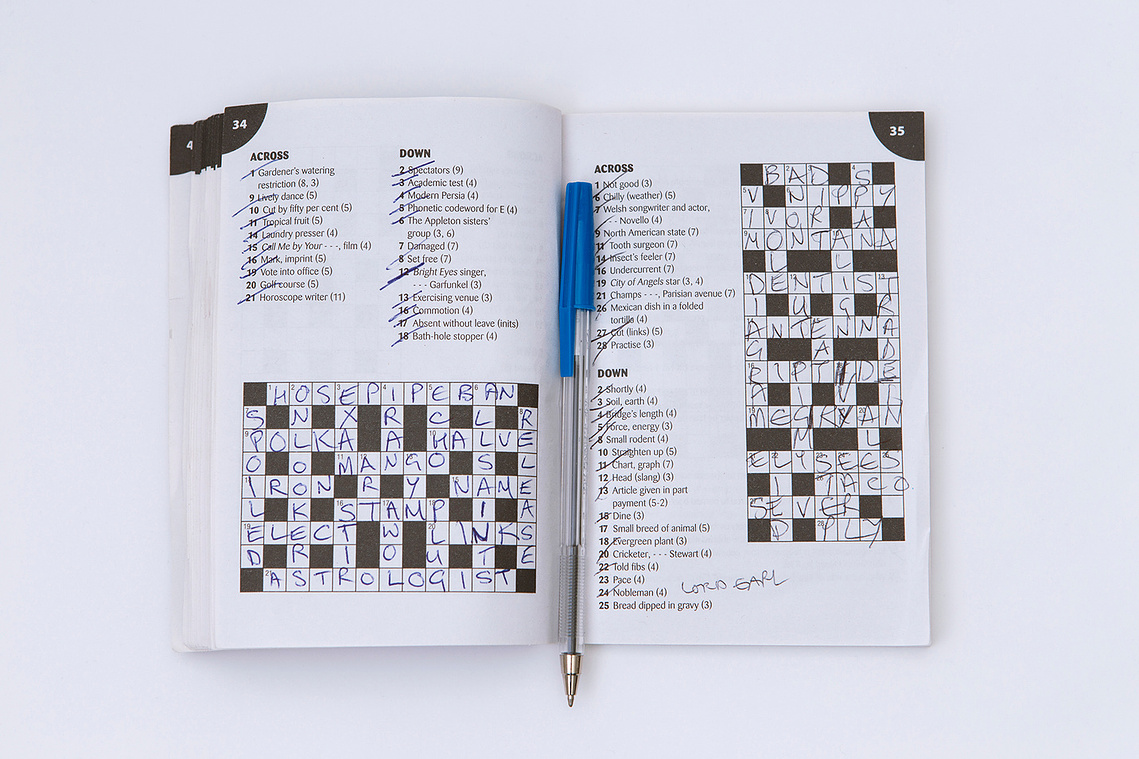 4
34
ACROSS
1 Gardener's watering
restriction (8, 3)
9 Lively dance (5)
10 Cut by fifty per cent (5)
11 Tropical fruit (5)
14 Laundry presser (4)
15 Call Me by Your - - -, film (4)
16 Mark, imprint (5)
19 Vote into office (5)
20 Golf course (5)
21 Horoscope writer (11)
DOWN
2 Spectators (9)
3 Academic test (4)
4 Modern Persia (4)
5 Phonetic codeword for E (4)
6 The Appleton sisters'
group (3, 6)
7 Damaged (7)
8 Set free (7)
12 Bright Eyes singer,
- - - Garfunkel (3)
13 Exercising venue (3)
16 Commotion (4)
17 Absent without leave (inits)
18 Bath-hole stopper (4)
HOSEPIPEBAN
S N X R C L R
POLKA A HALVE
O O MANGO S L
IRON R Y NAME
L K STAMP I A
ELECT W LINKS
D R I O U T E
ASTROLOGIST
35
ACROSS
1 Not good (3)
6 Chilly (weather) (5)
7 Welsh songwriter and actor,
- - - Novello (4)
9 North American state (7)
11 Tooth surgeon (7)
14 Insect's feeler (7)
16 Undercurrent (7)
19 City of Angels star (3, 4)
21 Champs - - -, Parisian avenue (7)
26 Mexican dish in a folded
tortilla (4)
27 Cut (links) (5)
28 Practise (3)
DOWN
2 Shortly (4)
3 Soil, earth (4)
4 Bridge's length (4)
5 Force, energy (3)
8 Small rodent (4)
10 Straighten up (5)
11 Chart, graph (7)
12 Head (slang) (3)
13 Article given in part
payment (5-2)
15 Dine (3)
17 Small breed of animal (5)
18 Evergreen plant (3)
20 Cricketer, - - - Stewart (4)
22 Told fibs (4)
23 Pace (4)
24 Nobleman (4) LORD EARL
25 Bread dipped in gravy (3)
BAD S
V NIPPY
IVOR A A
MONTANA
L L
DENTIST
I U G R
ANTENNA
G A D
RIPTIDE
A I V I
MEGRYAN
M L
ELYSEES
I TACO
SEVER
D PLY